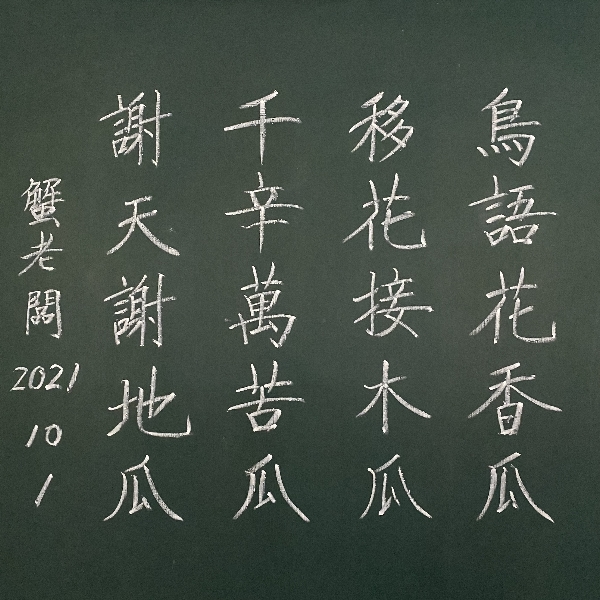 鳥語花香瓜
移花接木瓜
千辛萬苦瓜
謝天謝地瓜
蟹老闆 2021 10 1